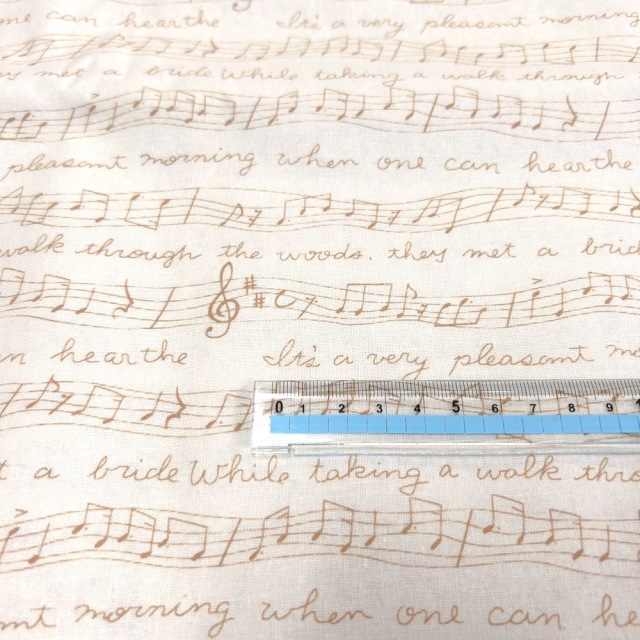 one can hearthe It's a very pleasamt morning
met a bride While taking a walk through
pleasamt morning when one can hearthe
walk through the woods. they met a brid
n hearthe It's a very pleasamt m
0 1 2 3 4 5 6 7 8 9 1
t a bride While taking a walk thro
mt morning when one can he